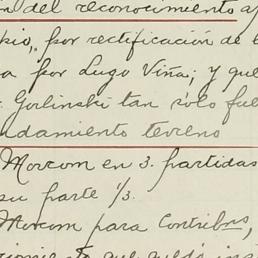 n del reconocimiento a
pio, por rectificación de l
a por Lugo Viña; y que
Gorlinski tan sólo fue
ndamiento terreno
Morcom en 3. partidas
su parte 1/3.
Morcom para Contribns,
que quedó